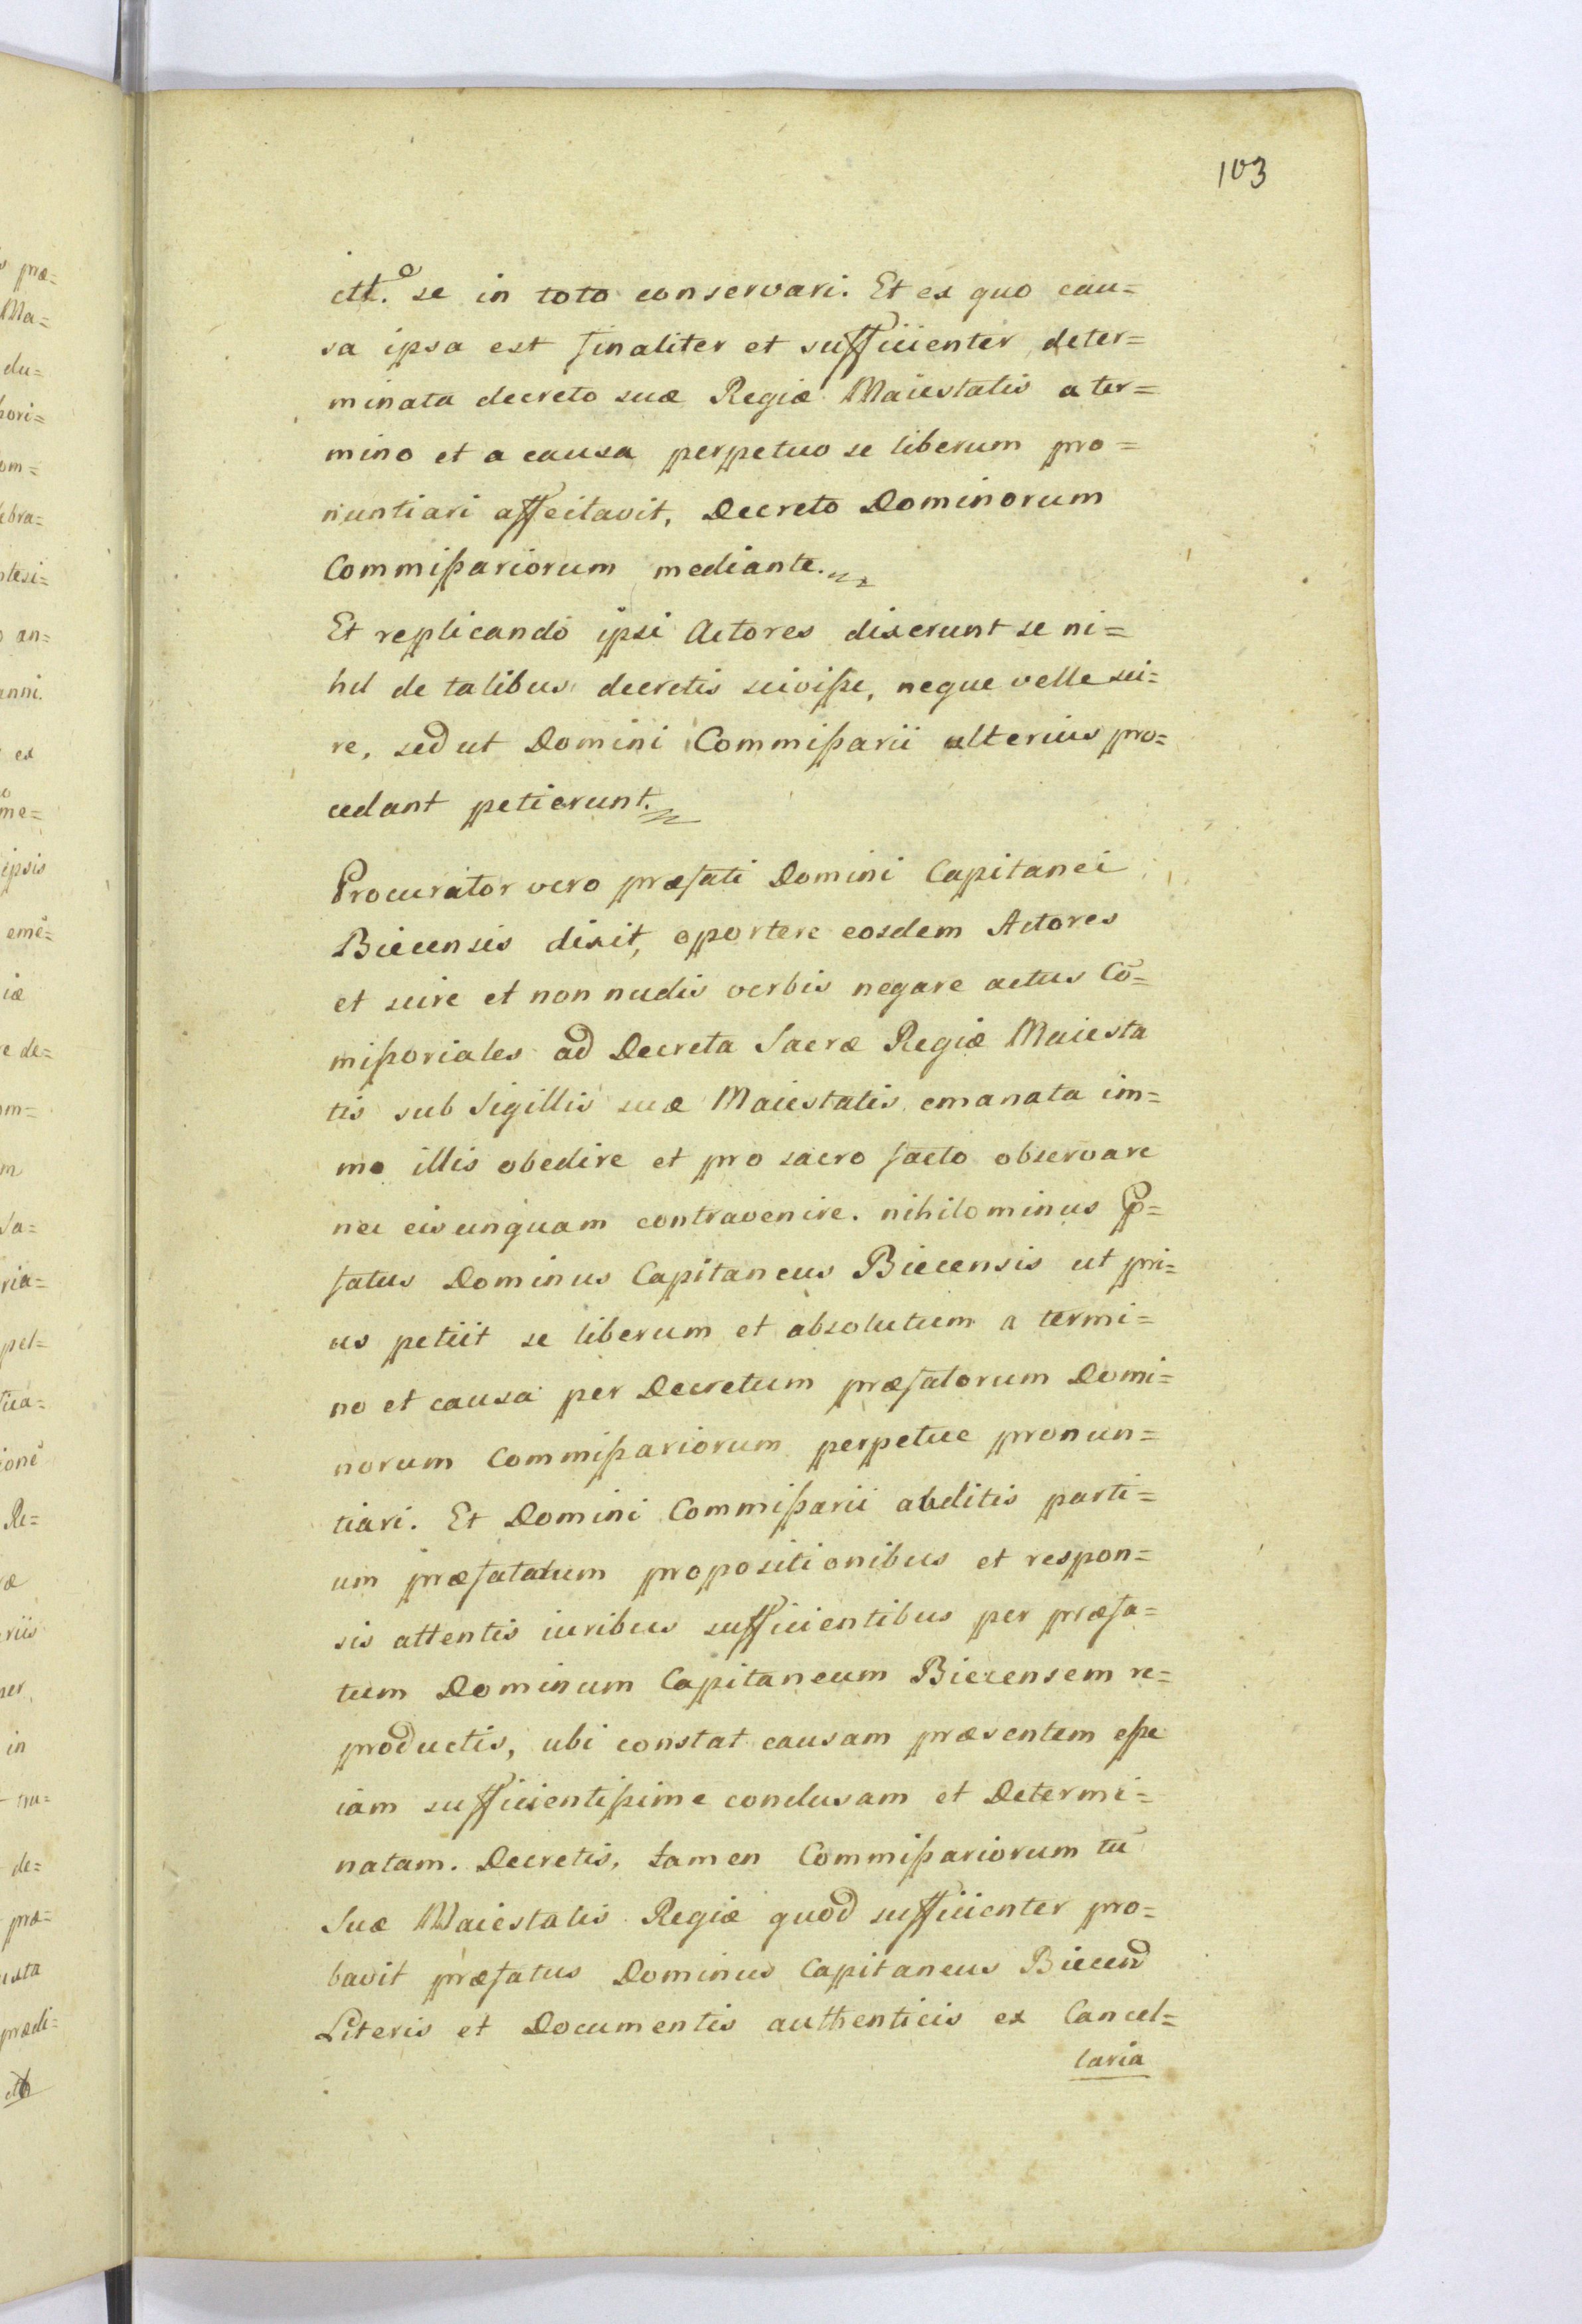 103
se in toto conservari. Et ex quo cau=
sa ipsa est finaliter et sufficienter deter=
minata decreto suæ Regiæ Maiestatis a ter=
mino et a causa perpetuo se liberum pro=
nuntiari affectavit, Decreto Dominorum
Commißariorum mediante.
Et replicando ipsi Actores dixerunt se ni=
hil de talibus decretis sciviße, neque velle sci=
re, sed ut Domini Commißarii ulterius pro=
cedant petierunt.
Procurator vero præfati Domini Capitanei
Biecensis dixit, oportere eosdem Actores
et scire et non nudis verbis negare actus Cō=
mißoriales ad Decreta Sacræ Regiæ Maiesta
tis sub Sigillis suæ Maiestatis emanata im=
mo illis obedire et pro sacro facto observare
nec eis unquam contravenire. nihilominus P=
fatus Dominus Capitaneus Biecensis ut pri=
us petiit se liberum et absolutum a termi=
no et causa per Decretum præfatorum Domi=
norum Commißariorum perpetue pronun=
tiari. Et Domini Commißarii auditis parti=
um præfatarum propositionibus et respon=
sis attentis iuribus sufficientibus per præfa=
tum Dominum Capitaneum Biecensem re=
productis, ubi constat causam præsentem eße
iam sufficientißime conclusam et Determi=
natam. Decretis, tamen Commißariorum tū
Suæ Maiestatis Regiæ quod sufficienter pro=
bavit præfatus Dominus Capitaneus Biecen
Literis et Documentis authenticis ex Cancel=
laria